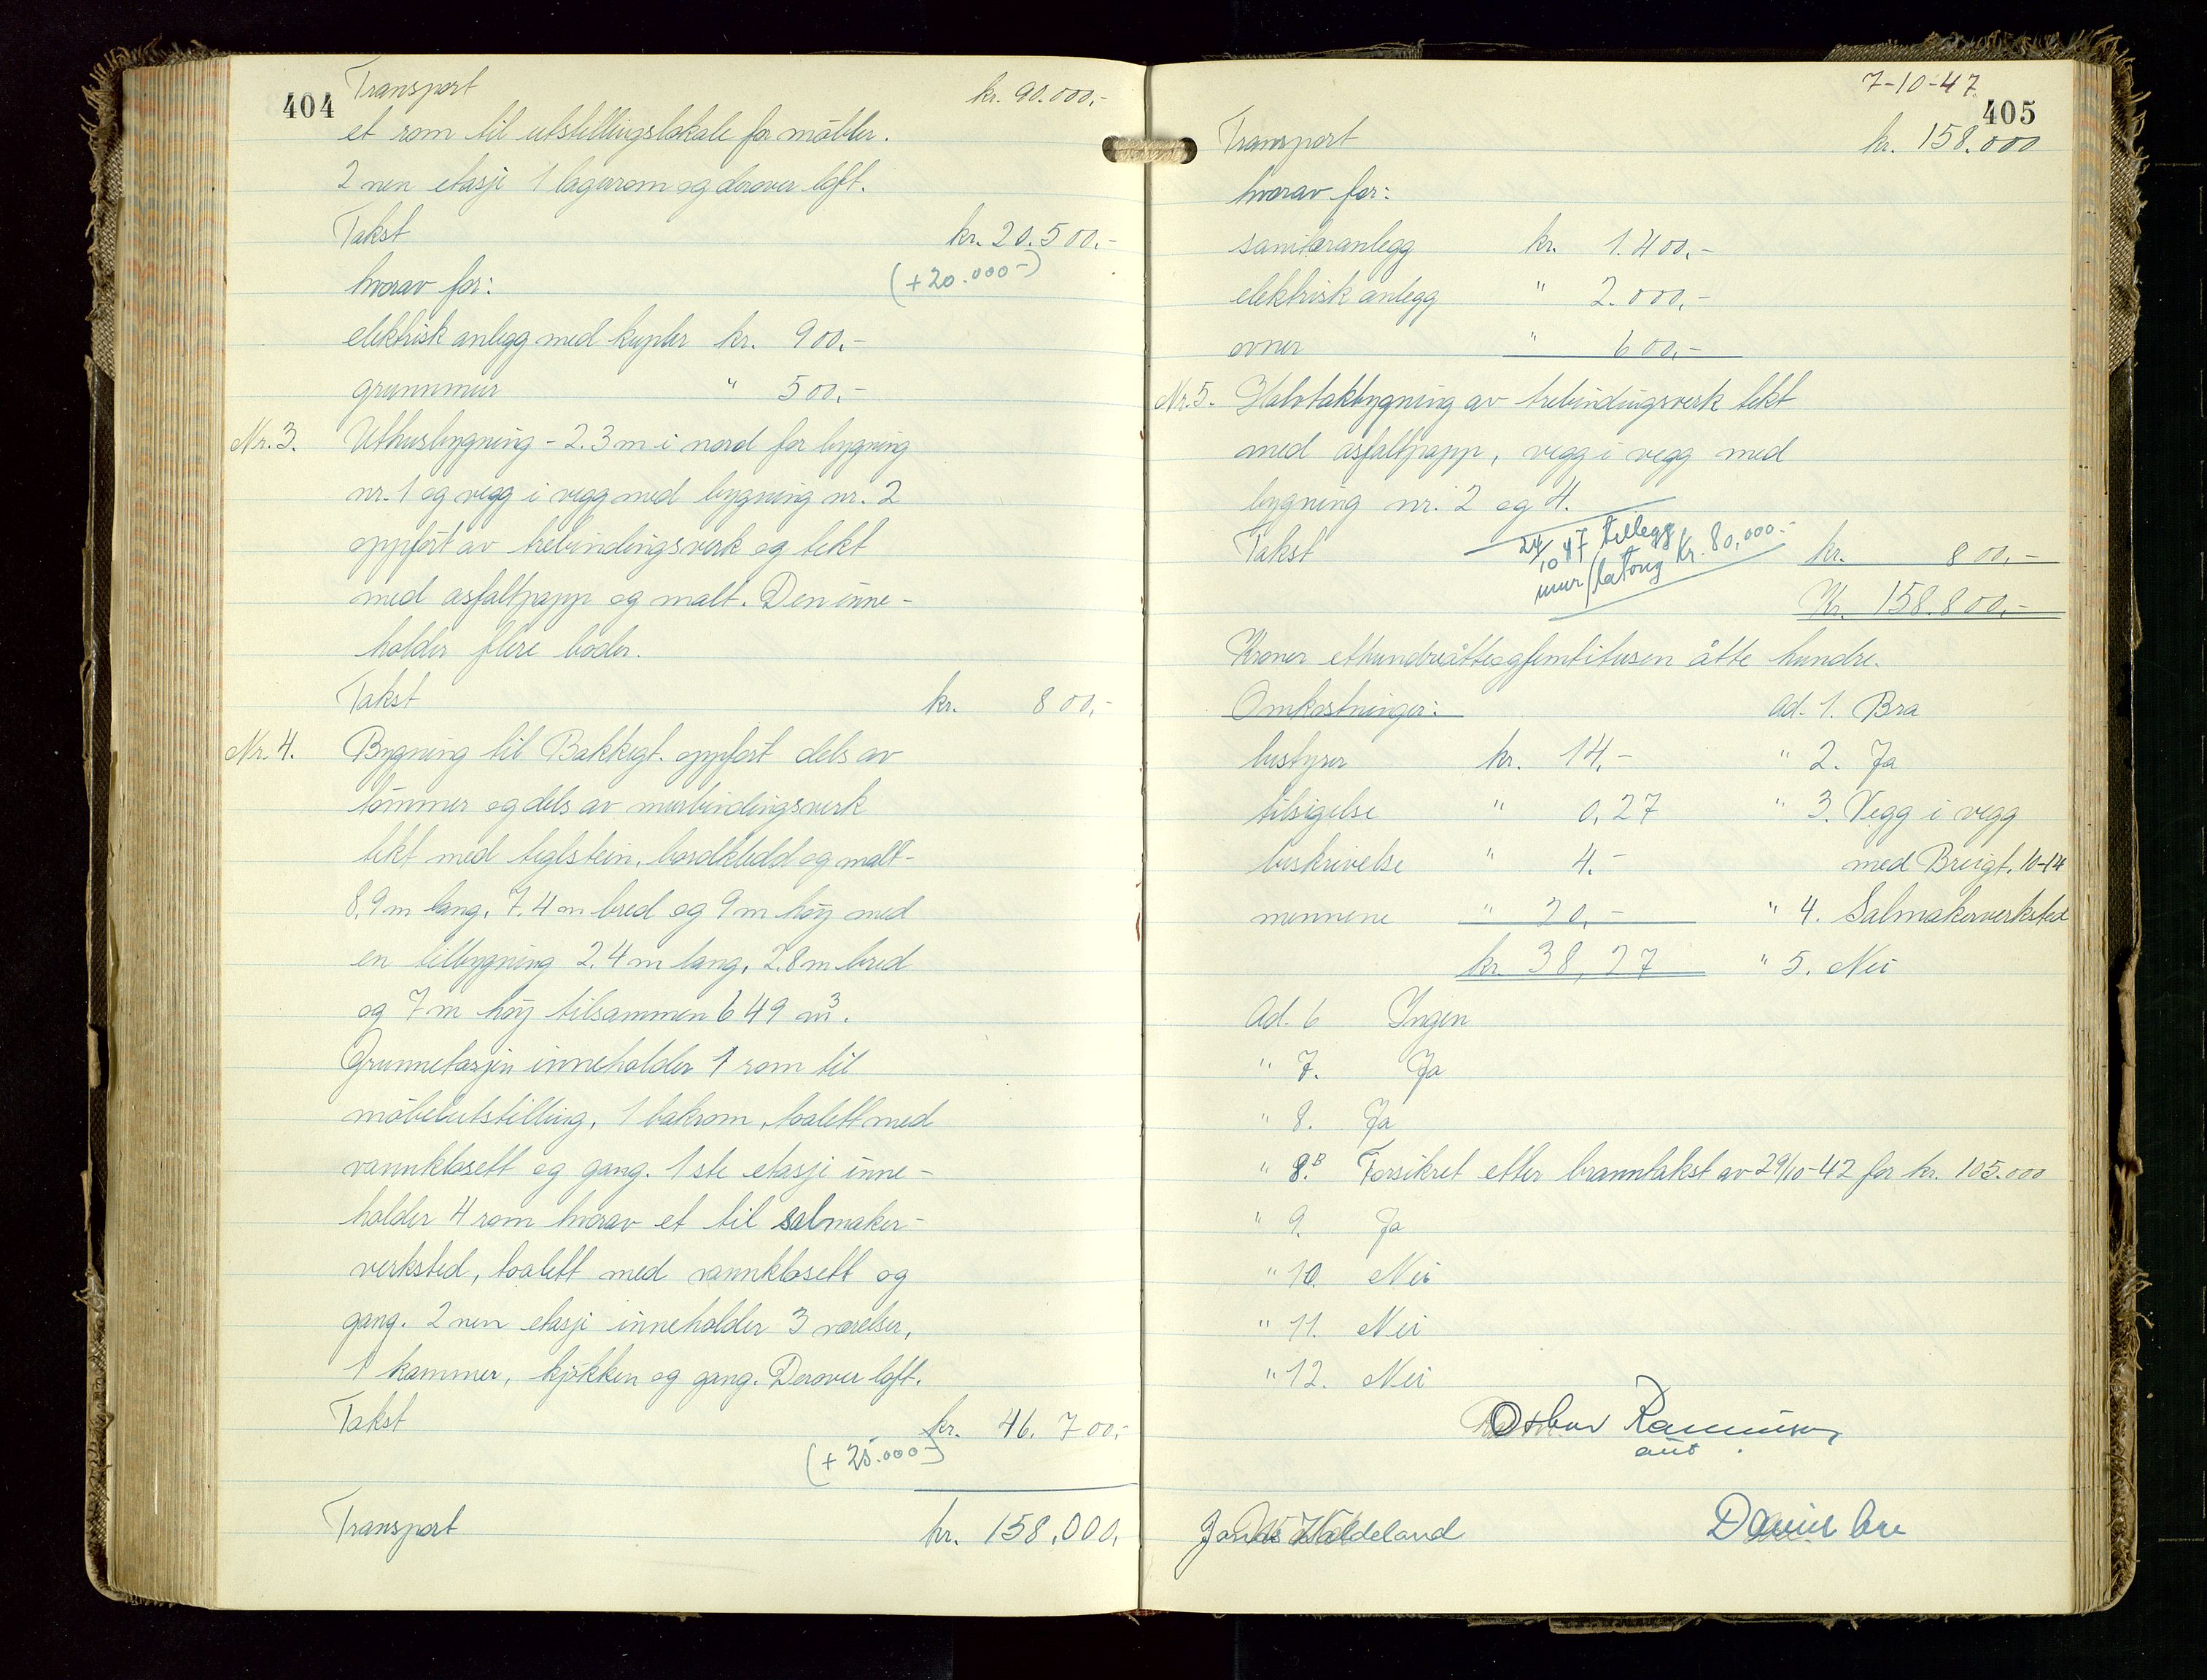 404
Transport kr. 90.000,-
et rom til utstillingslokale for møbler.
2 nen etasje 1 lagerrom og derover loft.
Takst kr. 20.500,-
(+20.000-)
hvorav for:
elektrisk anlegg med kupler kr. 900,-
grunnmur " 500,-
Nr. 3. Uthusbygning - 2.3 m i nord for bygning
nr. 1 og vegg i vegg med bygning nr. 2
oppført av trebindingsverk og tekt
med asfaltpapp og malt. Den inne-
holder flere boder.
Takst kr. 800,-
Nr. 4. Bygning til Bakkegt. oppført dels av
tømmer og dels av murbindingsverk
tekt med teglstein, bordkledd og malt -
8,9 m lang, 7.4 m bred og 9 m høy med
en tilbygning 2.4 m lang, 2.8 m bred
og 7 m høy tilsammen 649 m³.
Grunnetasjen inneholder 1 rom til
møbelutstilling, 1 bakrom, toalett med
vannklosett og gang. 1 ste etasje inne-
holder 4 rom hvorav et til salmaker-
verksted, toalett med vannklosett og
gang. 2 nen etasje inneholder 3 værelser,
1 kammer, kjøkken og gang. Derover loft.
Takst kr. 46.700,-
(+25.000-)
Transport kr. 158.000,
7-10-47
405
Transport kr. 158.000
hvorav for:
sanitæranlegg kr. 1.400,-
elektrisk anlegg " 2.000,-
ovner " 600,-
Nr. 5. Halvtakbygning av trebindingsverk tekt
med asfaltpapp, vegg i vegg med
bygning nr. 2 og 4.
24/10 47 tillegg
mur/ kr. 80,000.-
Takst kr. 800,-
Kr. 158.800,-
Kroner ethundreåtteogfemtitusen åtte hundre.
Omkostninger: ad. 1. Bra
bestyrer kr. 14,- " 2. Ja
tilsigelse " 0,27 " 3. Vegg i vegg
beskrivelse " 4.- med Breigt. 10-14
mennene " 20,- " 4. Salmakerverksted
kr. 38,27 " 5. Nei
Ad. 6 Ingen
" 7. Ja
" 8. Ja
" 8.B Forsikret etter branntakst av 29/10-42 for kr. 105.000
" 9. Ja
" 10. Nei
" 11. Nei
" 12. Nei
Oskar Rasmussen
Jonas Haldeland